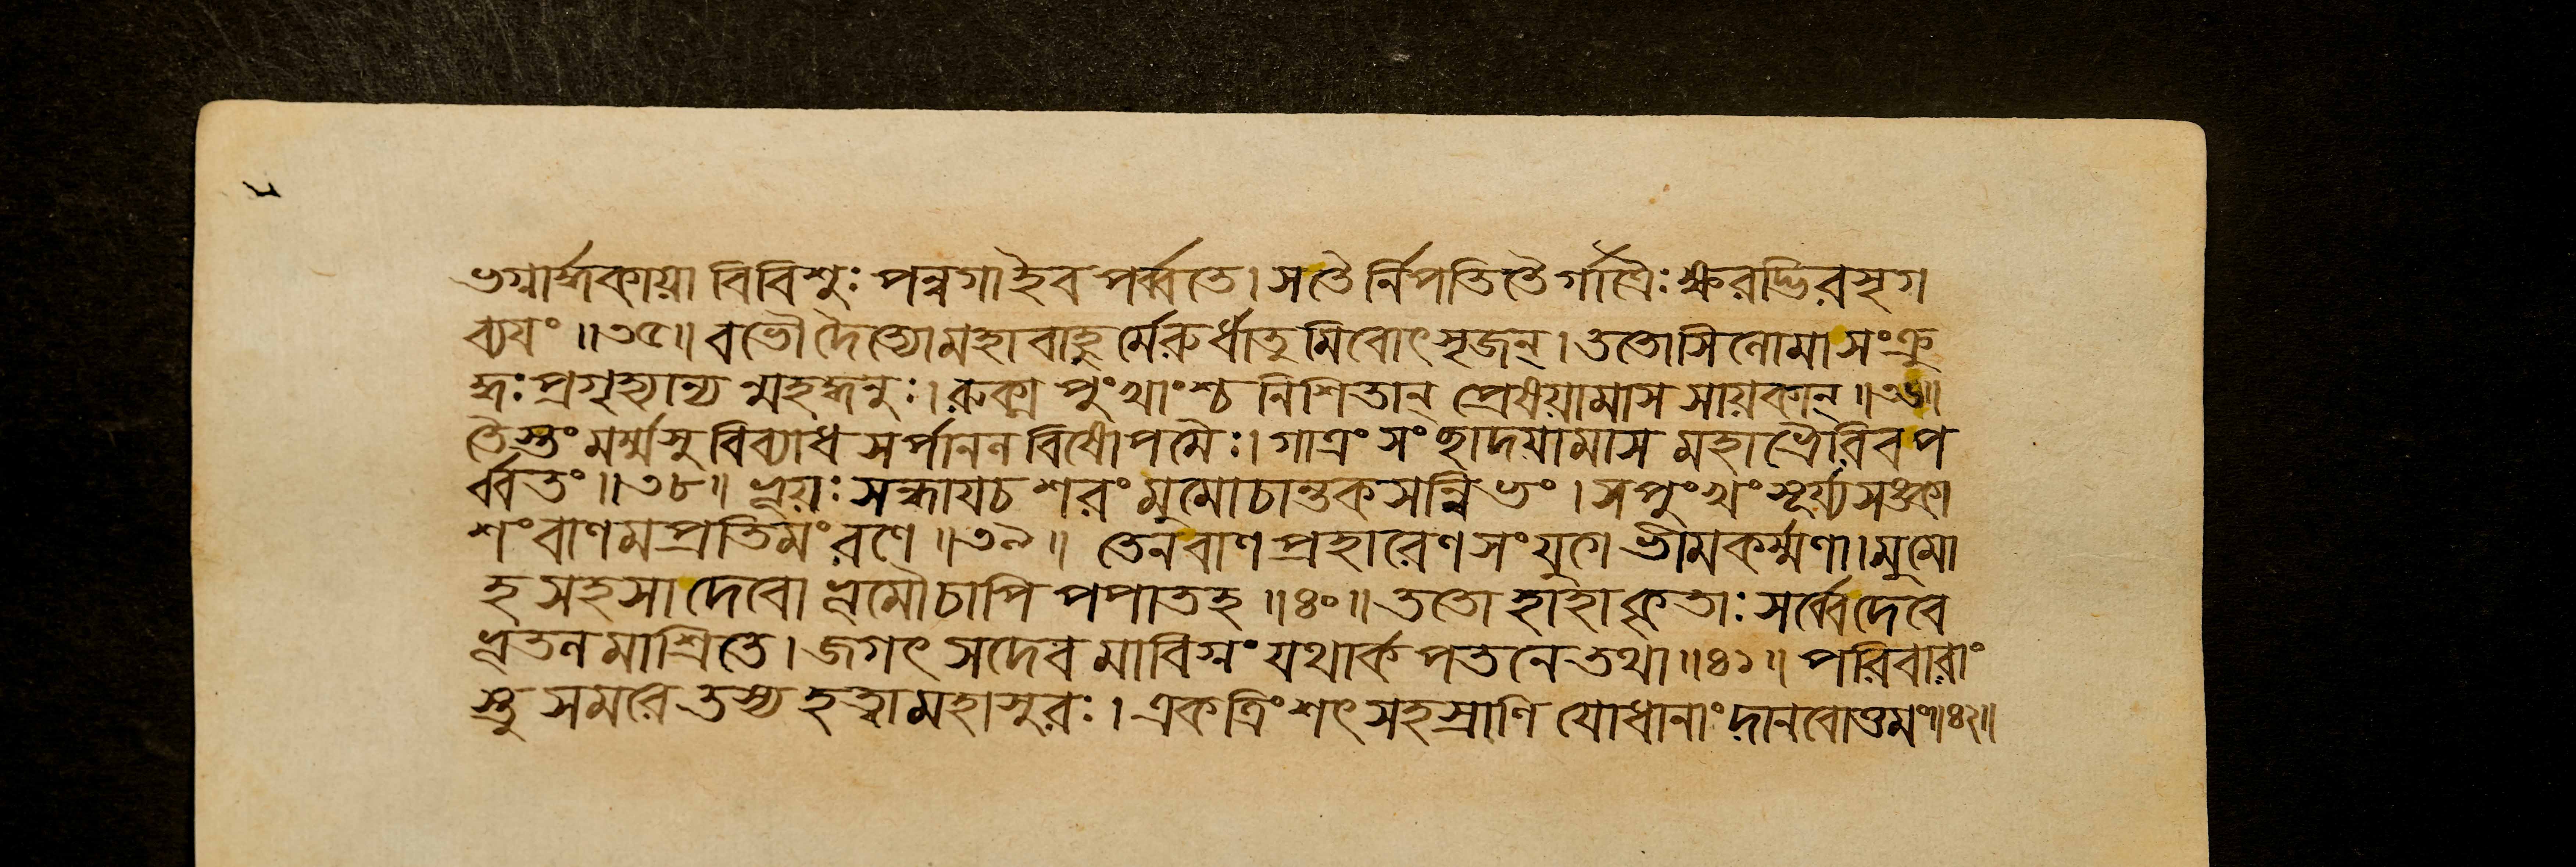 ভগ্নার্দ্ধকায়া বিবিশুঃ পন্নগাইব পর্ব্বতে। সতৈর্নিপতিতৈর্গাত্রৈঃ ক্ষরদ্ভিরসৃগ
ব্যযং ॥৩৫॥ বভৌ দৈত্যোমহাবাহুর্মেরুর্ধাতুমিবোৎসৃজন্। ততোসিনোমাসংক্রু
দ্ধঃ প্রগৃহ্যান্যন্মহদ্ধনুঃ। রুক্মপুংখাংশ্চ নিশিতান্ প্রেষয়ামাস সায়কান্ ॥৩৬॥
তৈস্তং মর্ম্মসু বিব্যাধ সর্পানন বিষোপমৈঃ। গাত্রং সংছাদয়ামাস মহাভ্রৈরিবপ
র্ব্বতং ॥৩৮॥ ভূয়ঃ সন্ধাযচ শরং মুমোচান্তকসন্নিভং। সপুংখং সূর্য্যসঙ্কা
শং বাণমপ্রতিমং রণে ॥৩৯॥ তেনবাণপ্রহারেণ সংযুগে ভীমকর্ম্মণা। মুমো
হ সহসা দেবো ভূমৌচাপি পপাতহ ॥৪০॥ ততো হাহাকৃতাঃ সর্ব্বেদেবে
ভূতলমাশ্রিতে। জগৎ সদেবমাবিগ্নং যথার্কপতনে তথা ॥৪১॥ পরিবারাং
স্তু সমরে তস্য হত্বামহাসুরঃ। একত্রিংশৎ সহস্রাণি যোধানাং দানবোত্তমঃ॥৪২॥